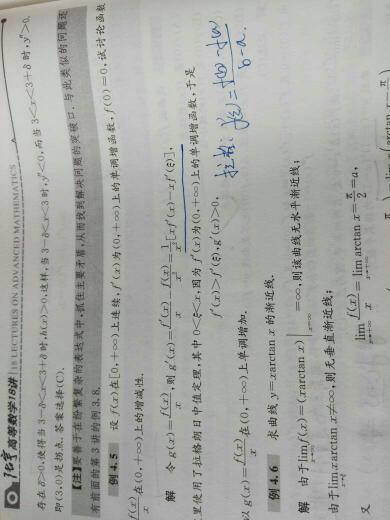 高等数学18讲 18 LECTURES ON ADVANCED MATHEMATICS
存在δ>0,使得当3-δ<x<3+δ时,h(x)>0,这样,当3-δ<x<3时,y″<0,而当3<x<3+δ时,y″>0,
即(3,0)是拐点.答案选择(C).
【注】要善于在纷繁复杂的表达式中,抓住主要矛盾,从而找到解决问题的突破口.与此类似的问题还
有前面的第3讲的例3.8.
例4.5 设f(x)在[0,+∞)上连续,f′(x)为(0,+∞)上的单调增函数,f(0)=0,试讨论函数
f(x)/x在(0,+∞)上的增减性.
解 令g(x)=f(x)/x,则g′(x)=f′(x)/x-f(x)/x²=1/x²[xf′(x)-xf′(ξ)],
里使用了拉格朗日中值定理,其中0<ξ<x,因为f′(x)为(0,+∞)上的单调增函数,于是
f′(x)>f′(ξ),g′(x)>0,
g(x)=f(x)/x在(0,+∞)上单调增加.
拉格: f′(ξ)=f(b)-f(a)/b-a.
例4.6 求曲线y=xarctan x的渐近线.
解 由于lim f(x)=(xarctan x)|x→∞=∞,则该曲线无水平渐近线;
由于lim xarctan x≠∞,则无垂直渐近线;
又 lim x→+∞ f(x)/x=lim x→+∞ arctan x=π/2=a,